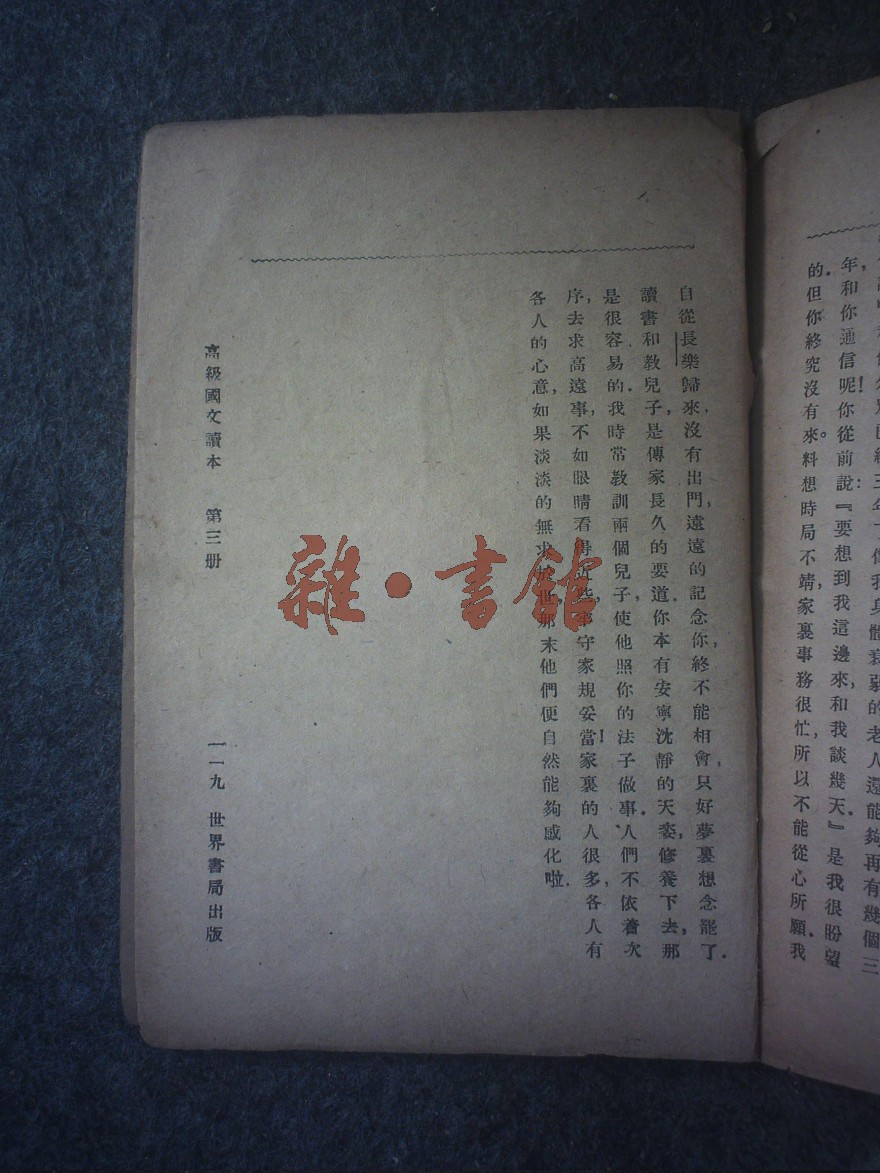 年,和你通信呢!你從前說:『要想到我這邊來,和我談幾天』是我很盼望
的.但你終究沒有來。料想時局不靖,家裏事務很忙,所以不能從心所願.我
自從長樂歸來,沒有出門,遠遠的記念你,終不能相會,只好夢裏想念罷了.
讀書和教兒子,是傳家長久的要道.你本有安寧沈靜的天姿,修養下去,那
是很容易的.我時常教訓兩個兒子,使他照你的法子做事.人們不依着次
序,去求高遠事,不如眼睛看得近些,守家規妥當!家裏的人很多,各人有
各人的心意,如果淡淡的無求 那末他們便自然能夠感化啦.
高級國文讀本 第三册
一一九 世界書局出版
雜·書館